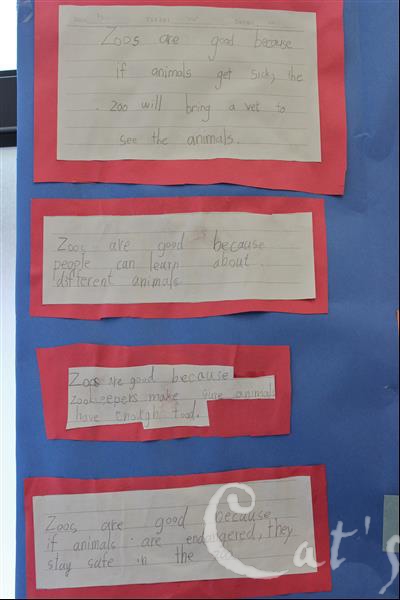 Zoos are good because
if animals get sick, the
zoo will bring a vet to
see the animals.
Zoos are good because
people can learn about
different animals
Zoos are good because
zookeepers make sure animals
have enough food.
Zoos are good because
if animals are endangered, they
stay safe in the zoo.
Cat's